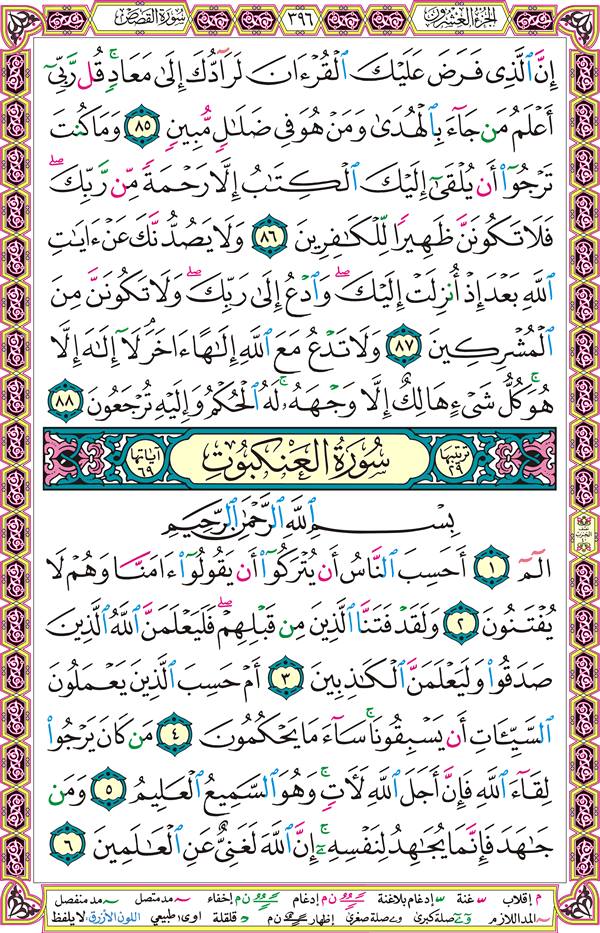 الجزء العشرون
٣٩٦
سورة القصص
إِنَّ ٱلَّذِى فَرَضَ عَلَيْكَ ٱلْقُرْءَانَ لَرَآدُّكَ إِلَىٰ مَعَادٍۚ قُل رَّبِّىٓ
أَعْلَمُ مَن جَآءَ بِٱلْهُدَىٰ وَمَنْ هُوَ فِى ضَلَـٰلٍ مُّبِينٍ ٨٥ وَمَا كُنتَ
تَرْجُوٓا۟ أَن يُلْقَىٰٓ إِلَيْكَ ٱلْكِتَـٰبُ إِلَّا رَحْمَةً مِّن رَّبِّكَۖ
فَلَا تَكُونَنَّ ظَهِيرًا لِّلْكَـٰفِرِينَ ٨٦ وَلَا يَصُدُّنَّكَ عَنْ ءَايَـٰتِ
ٱللَّهِ بَعْدَ إِذْ أُنزِلَتْ إِلَيْكَۖ وَٱدْعُ إِلَىٰ رَبِّكَۖ وَلَا تَكُونَنَّ مِنَ
ٱلْمُشْرِكِينَ ٨٧ وَلَا تَدْعُ مَعَ ٱللَّهِ إِلَـٰهًا ءَاخَرَۘ لَآ إِلَـٰهَ إِلَّا
هُوَۚ كُلُّ شَىْءٍ هَالِكٌ إِلَّا وَجْهَهُۥۚ لَهُ ٱلْحُكْمُ وَإِلَيْهِ تُرْجَعُونَ ٨٨
ترتيبها ٢٩ سورة العنكبوت آياتها ٦٩
بِسْمِ ٱللَّهِ ٱلرَّحْمَـٰنِ ٱلرَّحِيمِ
الٓمٓ ١ أَحَسِبَ ٱلنَّاسُ أَن يُتْرَكُوٓا۟ أَن يَقُولُوٓا۟ ءَامَنَّا وَهُمْ لَا
يُفْتَنُونَ ٢ وَلَقَدْ فَتَنَّا ٱلَّذِينَ مِن قَبْلِهِمْۖ فَلَيَعْلَمَنَّ ٱللَّهُ ٱلَّذِينَ
صَدَقُوا۟ وَلَيَعْلَمَنَّ ٱلْكَـٰذِبِينَ ٣ أَمْ حَسِبَ ٱلَّذِينَ يَعْمَلُونَ
ٱلسَّيِّـَٔاتِ أَن يَسْبِقُونَاۚ سَآءَ مَا يَحْكُمُونَ ٤ مَن كَانَ يَرْجُوا۟
لِقَآءَ ٱللَّهِ فَإِنَّ أَجَلَ ٱللَّهِ لَـَٔاتٍۚ وَهُوَ ٱلسَّمِيعُ ٱلْعَلِيمُ ٥ وَمَن
جَـٰهَدَ فَإِنَّمَا يُجَـٰهِدُ لِنَفْسِهِۦٓۚ إِنَّ ٱللَّهَ لَغَنِىٌّ عَنِ ٱلْعَـٰلَمِينَ ٦
م إقلاب غنة إدغام بلاغنة ن م إدغام ن م إخفاء مد متصل مد منفصل
المد اللازم صلة كبرى صلة صغرى إظهار ن م قلقلة اوى طبيعي اللون الأزرق لا يلفظ